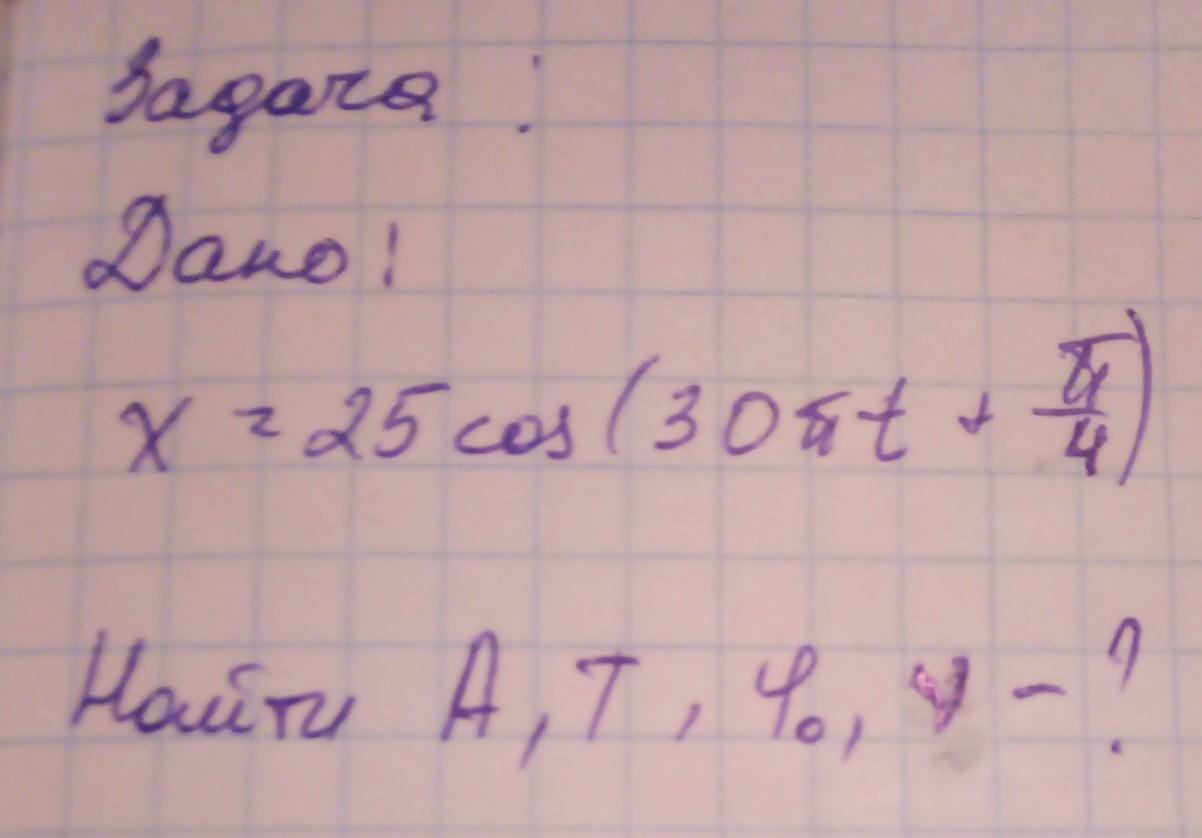 Задача :
Дано:
x = 25 cos (30πt + π/4)
Найти A, T, φ₀, ν - ?